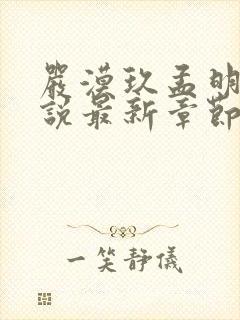 嚴漠玖孟明
說最新章節
一笑靜儀